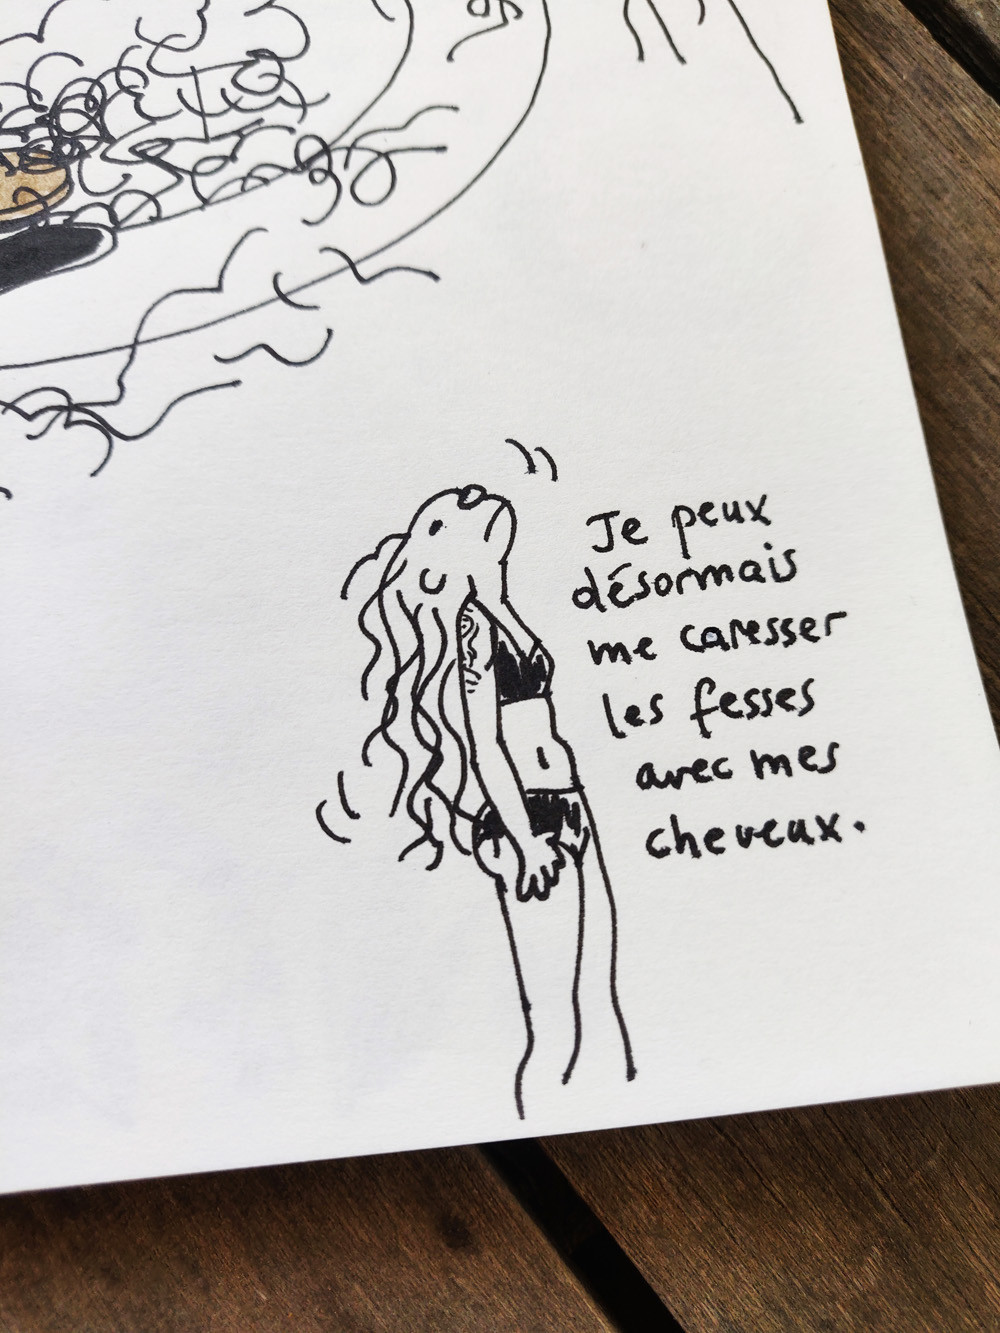 Je peux
désormais
me caresser
les fesses
avec mes
cheveux.